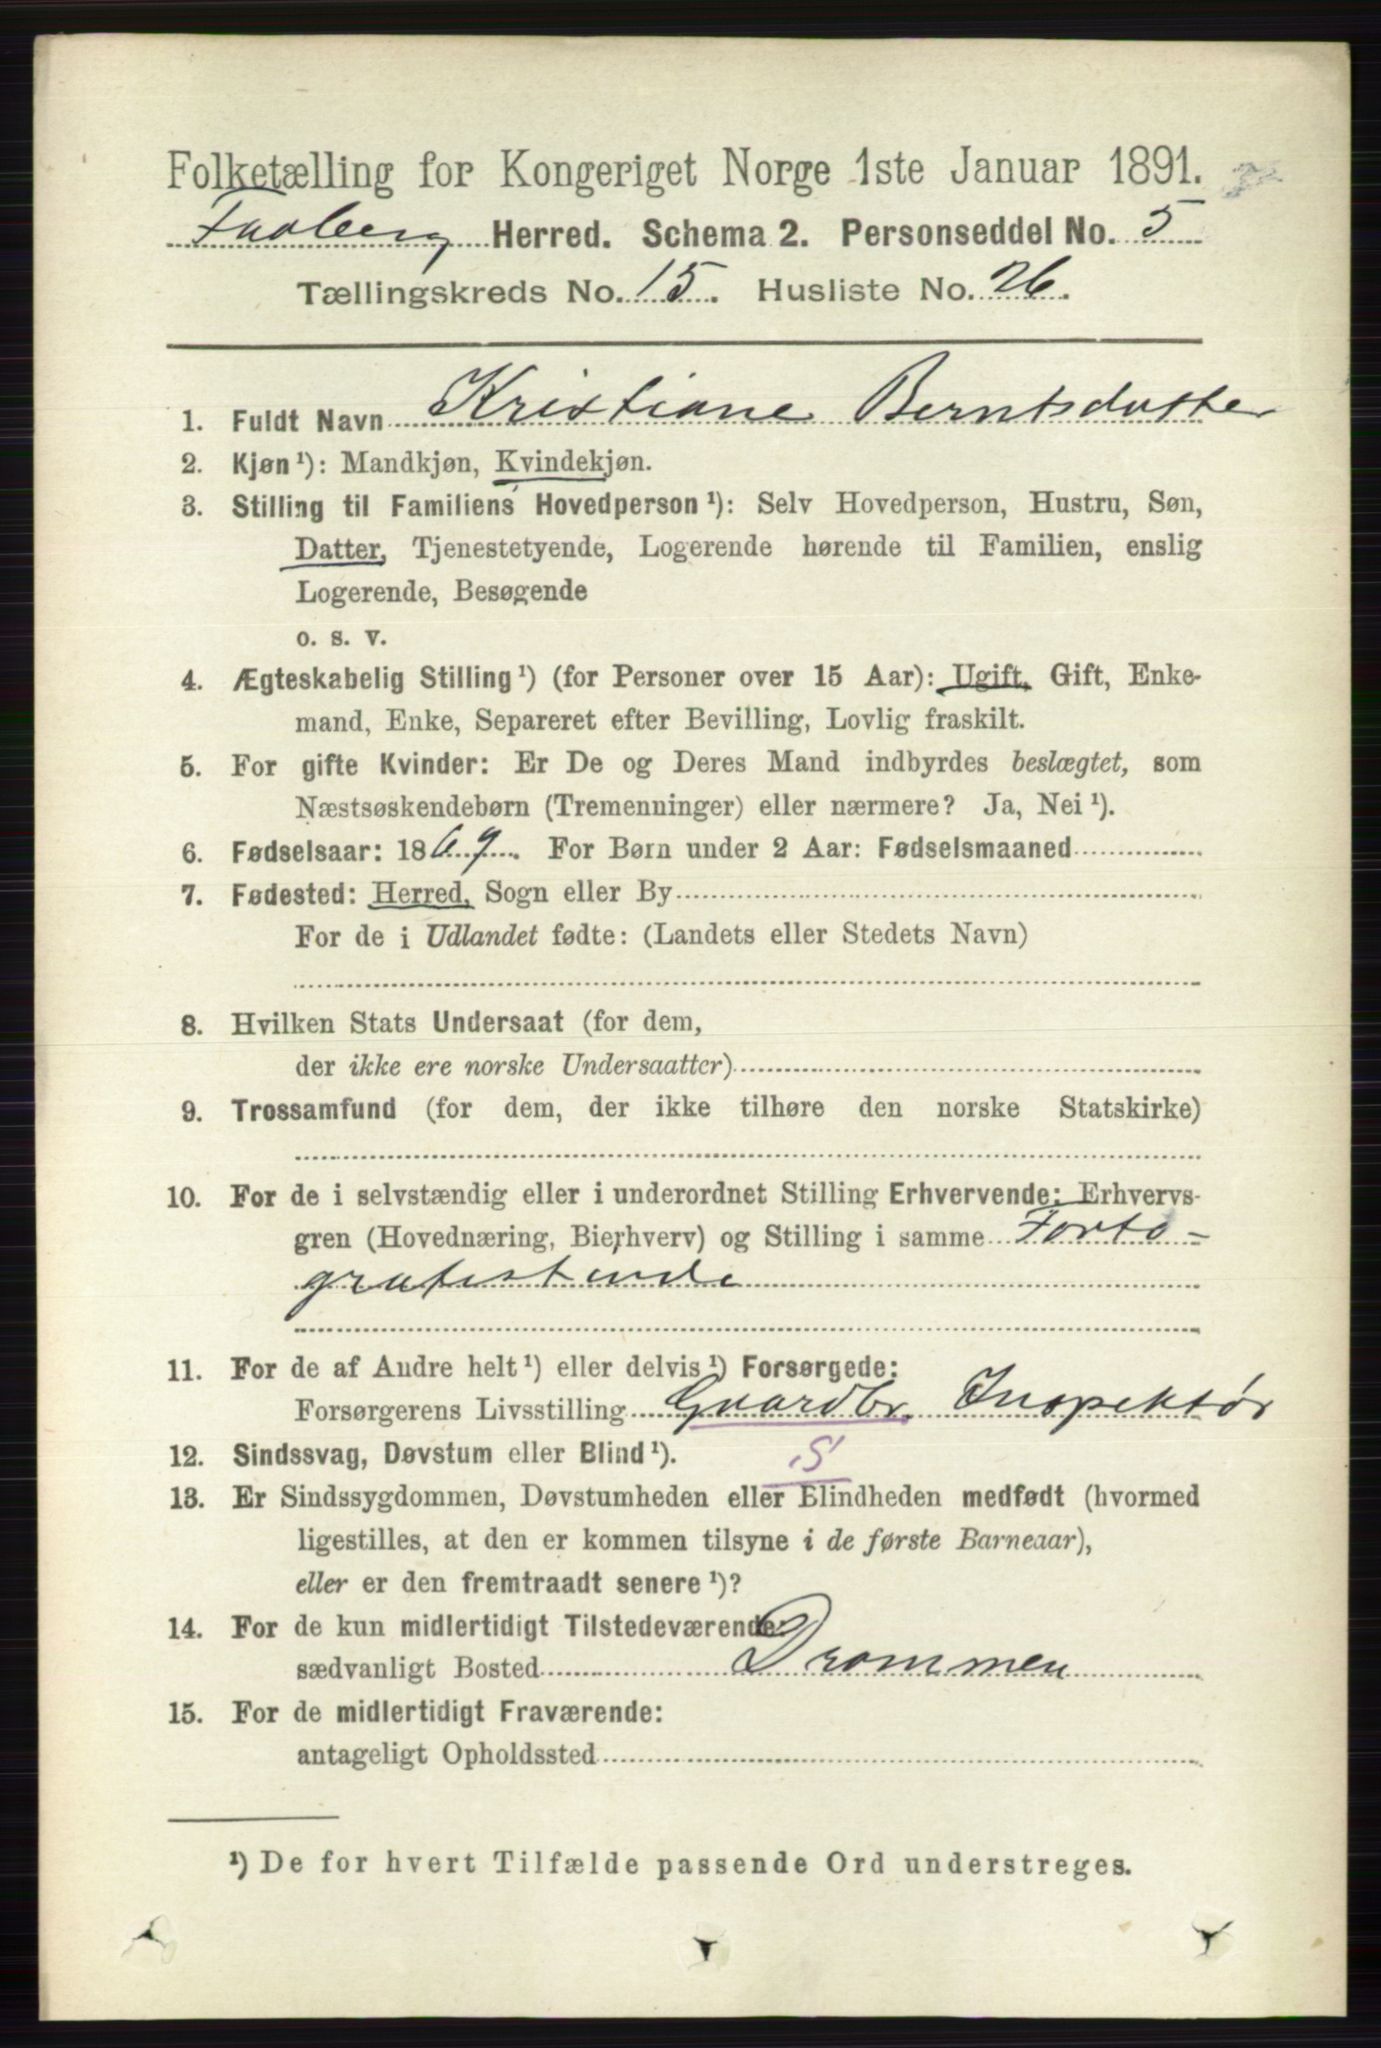 Folketælling for Kongeriget Norge 1ste Januar 1891.
Faaberg Herred. Schema 2. Personseddel No. 5
Tællingskreds No. 15. Husliste No. 26.
1. Fuldt Navn Kristiane Berntsdatter
2. Kjøn ¹): Mandkjøn, Kvindekjøn.
3. Stilling til Familiens Hovedperson ¹): Selv Hovedperson, Hustru, Søn,
Datter, Tjenestetyende, Logerende hørende til Familien, enslig
Logerende, Besøgende
o. s. v.
4. Ægteskabelig Stilling ¹) (for Personer over 15 Aar): Ugift, Gift, Enke-
mand, Enke, Separeret efter Bevilling, Lovlig fraskilt.
5. For gifte Kvinder: Er De og Deres Mand indbyrdes beslægtet, som
Næstsøskendebørn (Tremenninger) eller nærmere? Ja, Nei ¹).
6. Fødselsaar: 1869. For Børn under 2 Aar: Fødselsmaaned
7. Fødested: Herred, Sogn eller By
For de i Udlandet fødte: (Landets eller Stedets Navn)
8. Hvilken Stats Undersaat (for dem,
der ikke ere norske Undersaatter)
9. Trossamfund (for dem, der ikke tilhøre den norske Statskirke)
10. For de i selvstændig eller i underordnet Stilling Erhvervende: Erhvervs-
gren (Hovednæring, Bierhverv) og Stilling i samme Forto-
grafistinde
11. For de af Andre helt ¹) eller delvis ¹) Forsørgede:
Forsørgerens Livsstilling Gaardbr. Inspektør
12. Sindssvag, Døvstum eller Blind ¹). S
13. Er Sindssygdommen, Døvstumheden eller Blindheden medfødt (hvormed
ligestilles, at den er kommen tilsyne i de første Barneaar),
eller er den fremtraadt senere ¹)?
14. For de kun midlertidigt Tilstedeværende:
sædvanligt Bosted Drammen
15. For de midlertidigt Fraværende:
antageligt Opholdssted
¹) De for hvert Tilfælde passende Ord understreges.